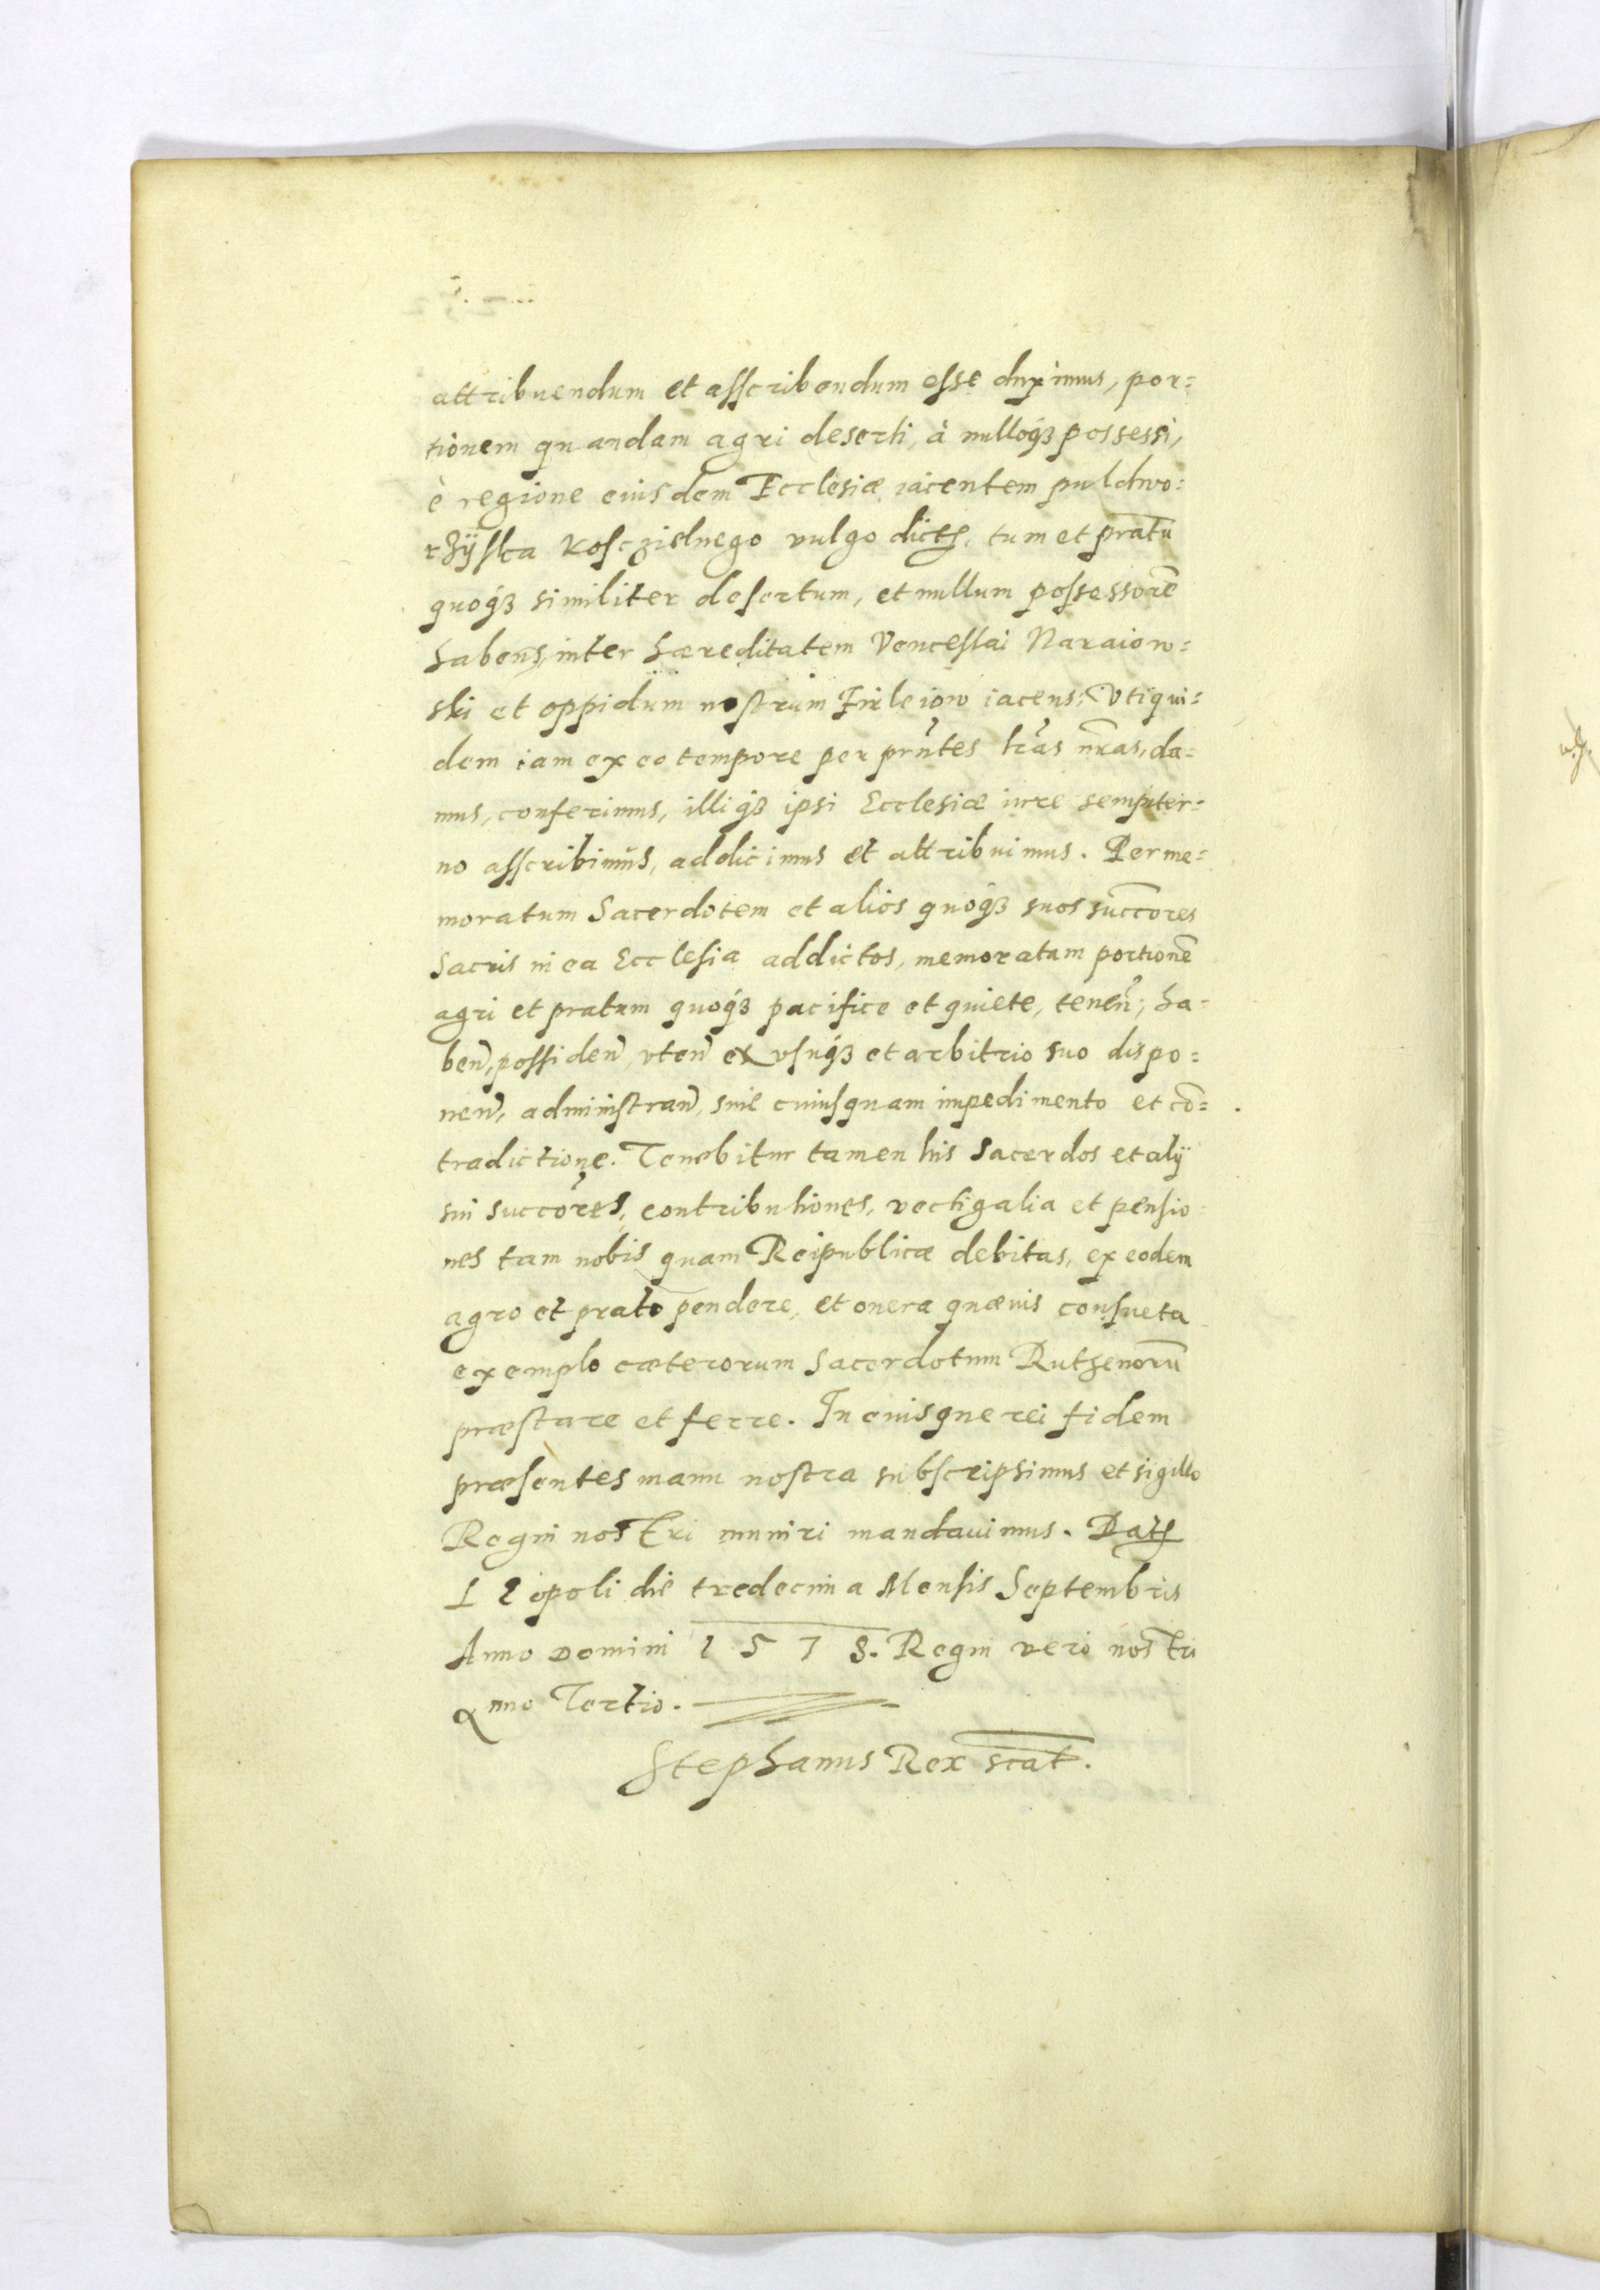 attribuendum et asscribendum esse duximus, por=
tionem quandam agri deserti, à nulloq́ꝫ possessi,
è regione eiusdem Ecclesiæ iacentem puldwo=
rzÿska kosczielnego vulgo dictꝭ, tum et pratũ
quoq́ꝫ similiter desertum, et nullum possessorẽ
habens, inter hæreditatem Venceslai Naraiow=
ski et oppidum nostrum Firleiow iacens; Vtiqui=
dem iam ex eo tempore per prñtes lr̃as nr̃as, da=
mus, conferimus, illiq́ꝫ ipsi Ecclesiæ iure sempiter=
no asscribimus, addicimus et attribuimus. Per me=
moratum Sacerdotem et alios quoq́ꝫ suos succõres
Sacris in ea Ecclesia addictos, memoratam portionẽ
agri et pratum quoq́ꝫ pacifice et quiete, teneñ, ha=
beñ, possideñ, vteñ ex vsuq́ꝫ et arbitrio suo dispo=
neñ, administrañ, sine cuiusquam impedimento et cõ=
tradictione. Tenebitur tamen his Sacerdos et alÿ
sui succõres, contributiones, vectigalia et pensio=
nes tam nobis quam Reipublicæ debitas, ex eodem
agro et prato pendere, et onera quæuis consueta
exemplo cæterorum Sacerdotum Ruthenorũ
præstare et ferre. In cuius que rei fidem
præsentes manu nostra subscripsimus et sigillo
Regni nostri muniri mandauimus. Datꝭ
Leopoli die tredecima Mensis Septembris
Anno Domini 1578. Regni vero nostri
Anno Tertio.
Stephanus Rex scat.